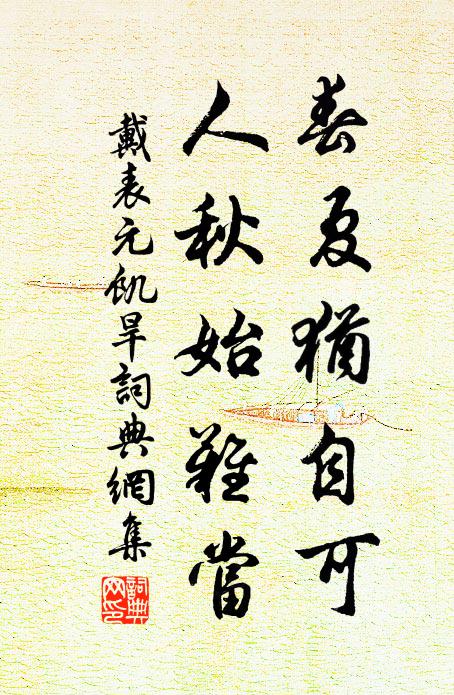 春夏猶自可
人秋始難當
戴表元飢旱詞典網集
詞典
网印